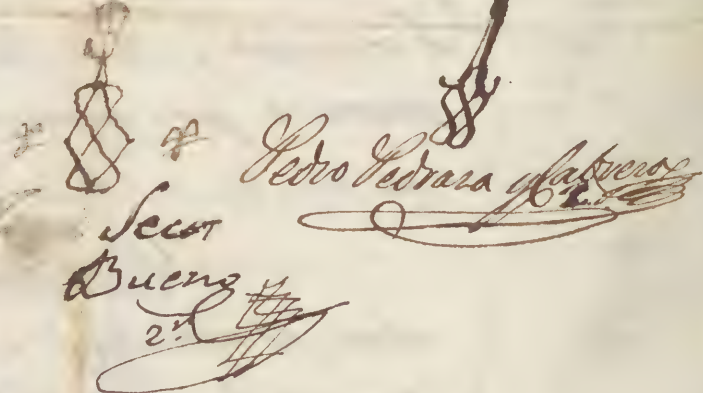 Pedro Pedraza y Cabrero
Secrt
Bueno
2ˢ